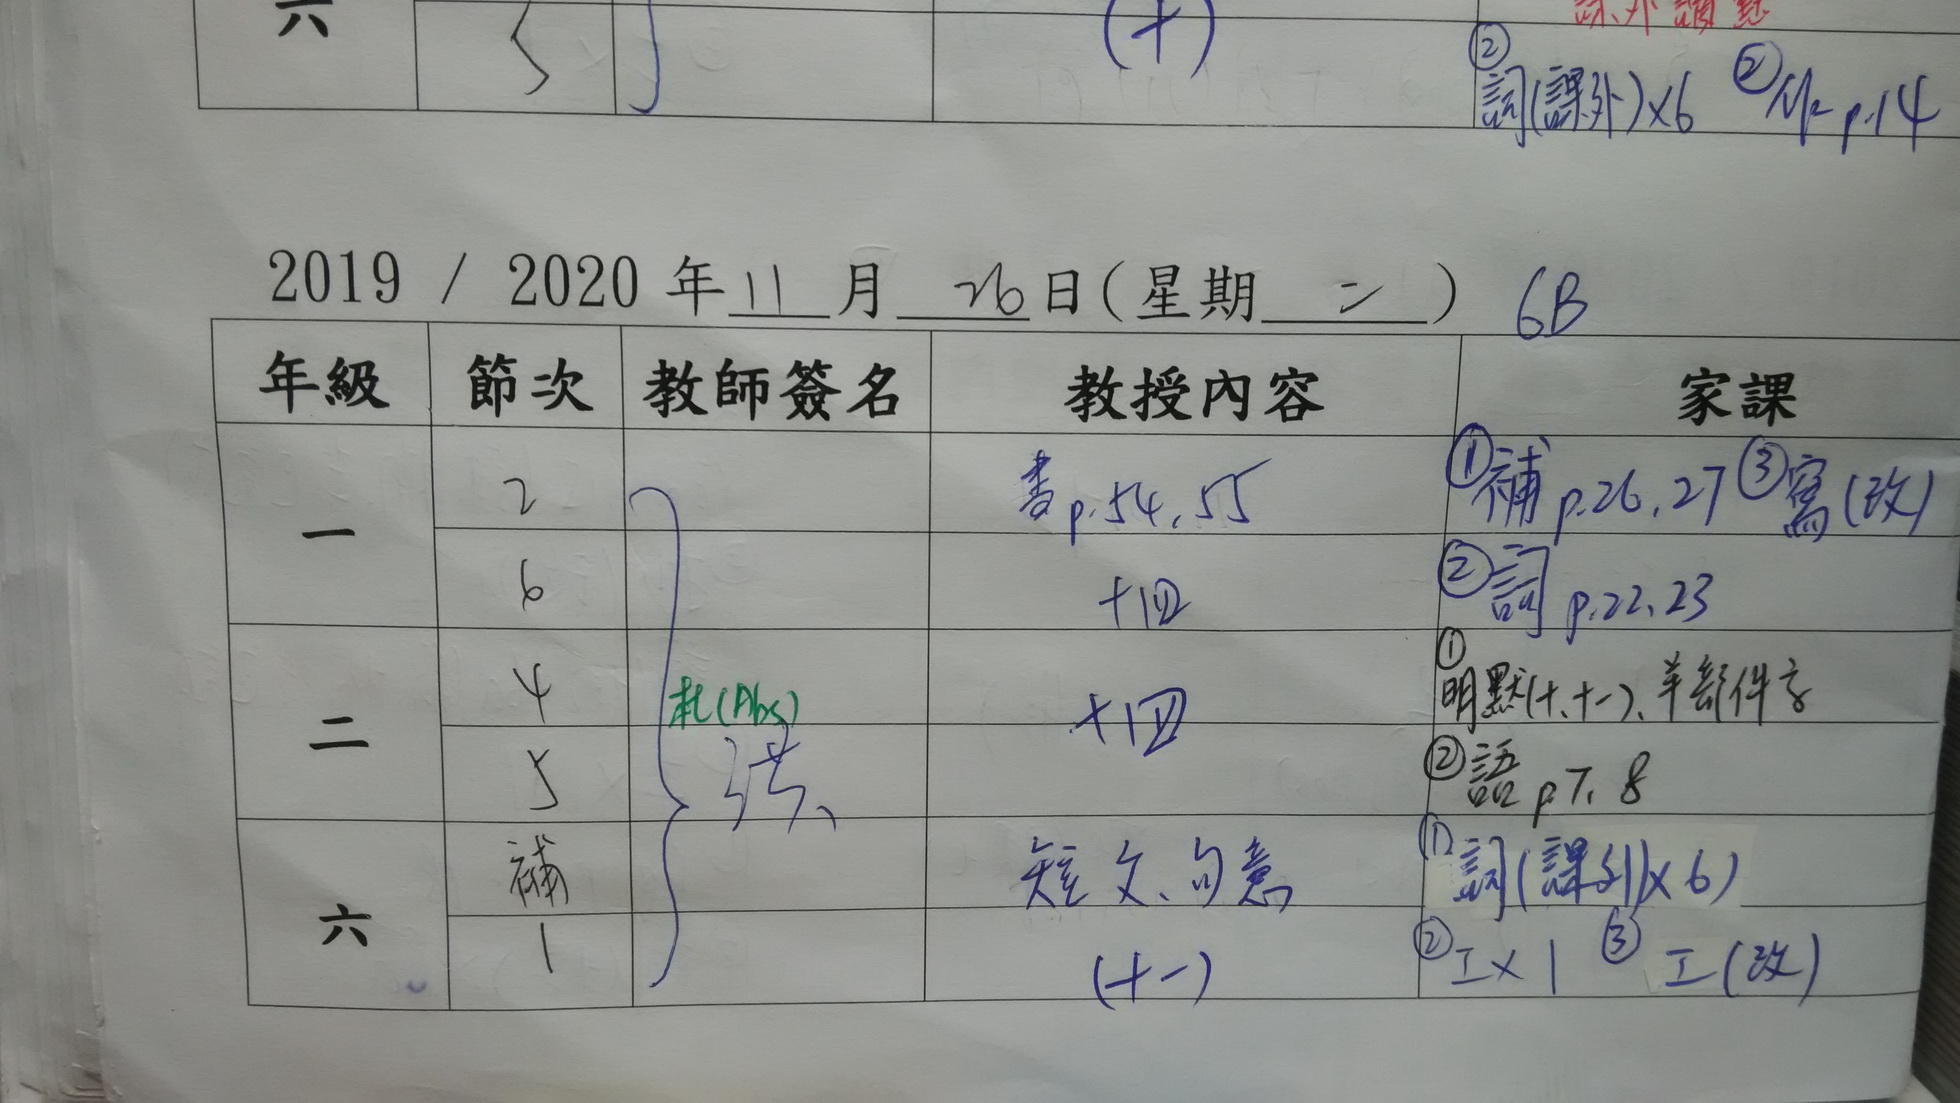 六 (十) 課外讀默
② 詞(課外)×6 ② p.14
2019 / 2020 年 11 月 26 日(星期 二 ) 6B
年級 節次 教師簽名 教授內容 家課
一 2 書 p.54, 55 ① 補 p.26, 27 ③ 寫(改)
6 十四 ② 詞 p.22, 23
二 4 (Abs) 十四 ① 明默(十、十一)、羊部件字
5 ② 語 p7, 8
六 補 短文、句意 ① 詞(課外)×6)
1 (十一) ② 工×1 ③ 工(改)